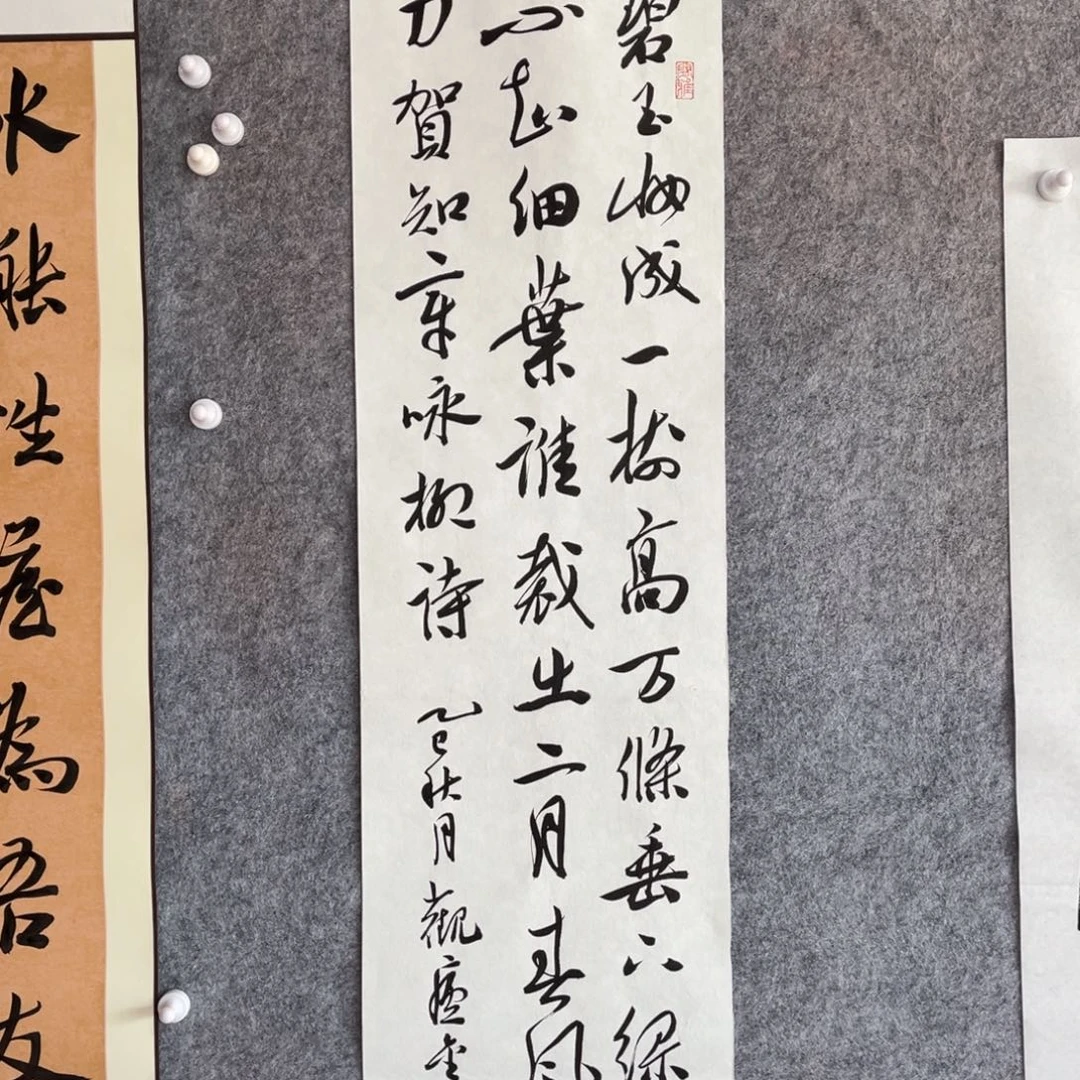 碧玉妝成一樹高万條垂下綠
不知細葉誰裁出二月春風
刀賀知章咏柳詩
乙巳秋月觀廬書
水能性澹為吾友